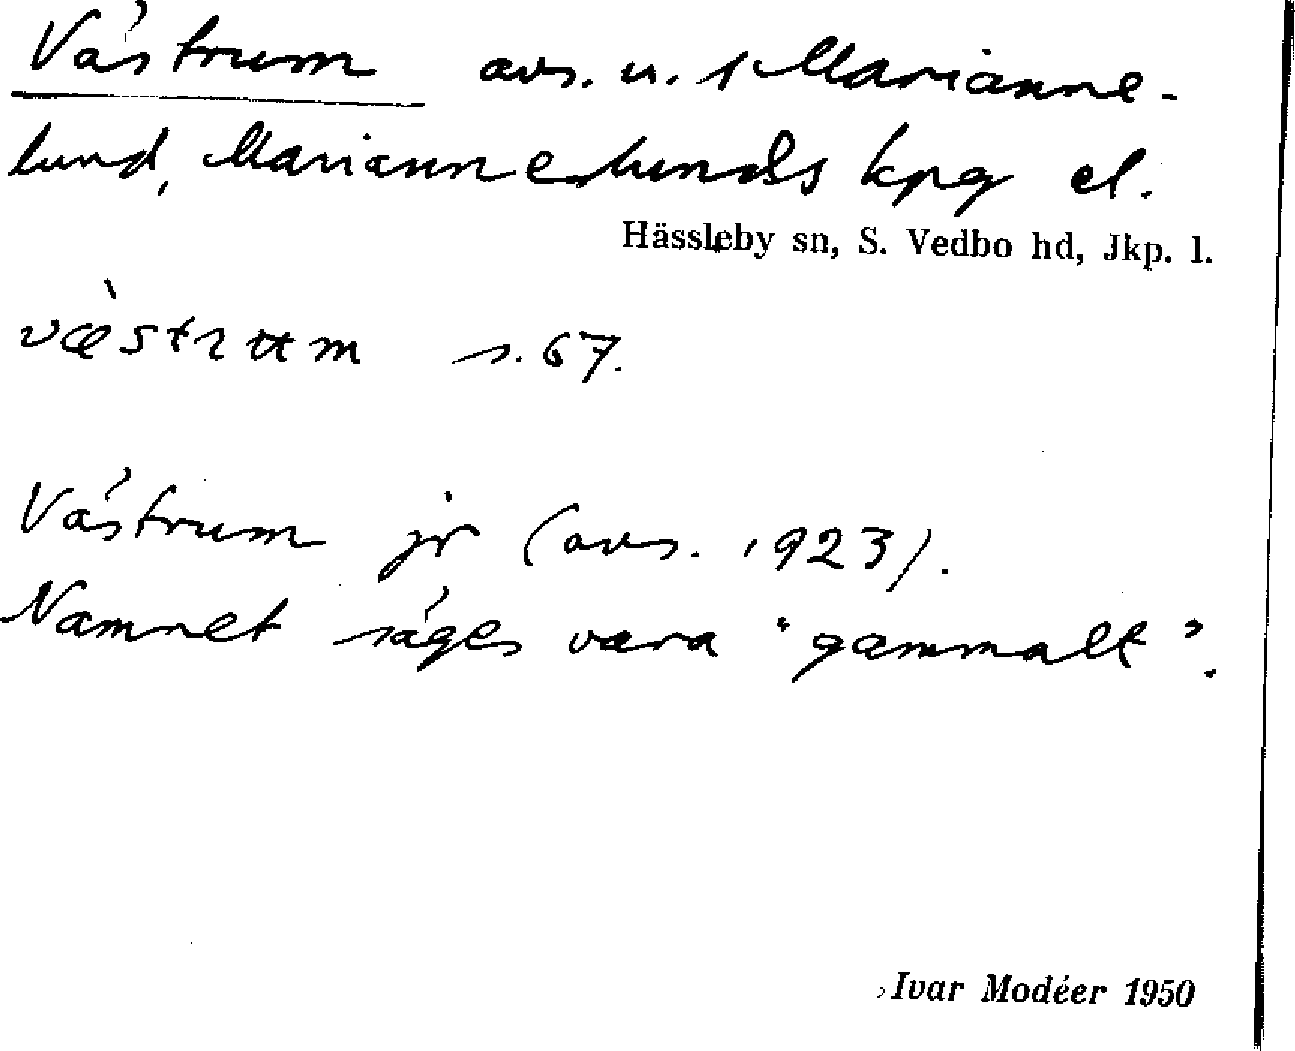 Västrum avs. u. 1 Marianne-
lund, Mariannelunds kpg el.
Hässleby sn, S. Vedbo hd, Jkp. l.
væ̀strum s. 67.
Västrum jr (avs. 1923).
Namnet säges vara "gammalt".
Ivar Modéer 1950